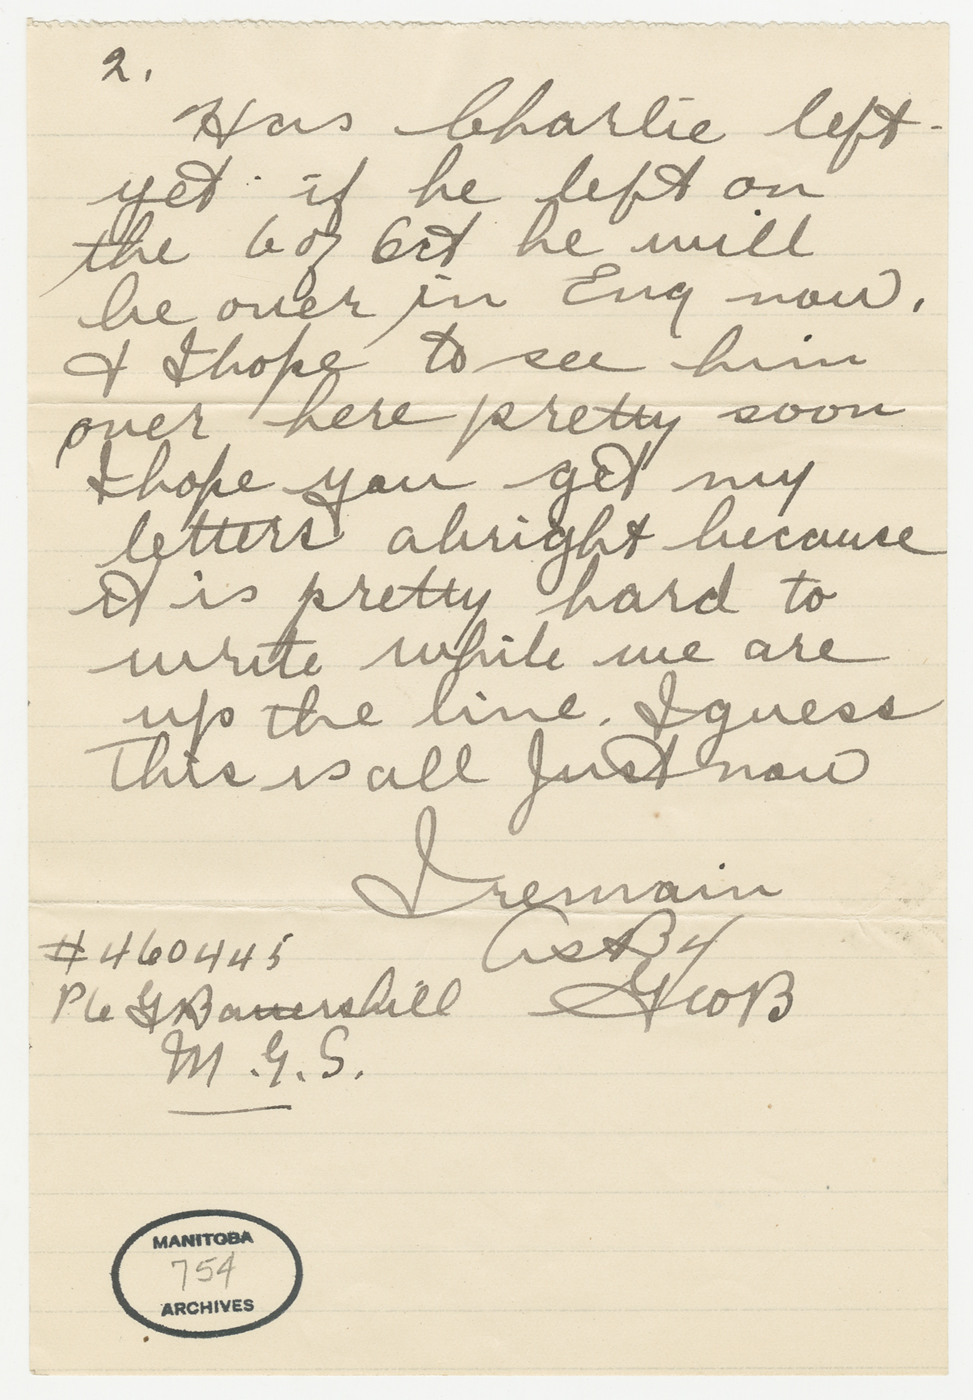 2.
Has Charlie left
yet. if he left on
the 6 of Oct he will
be over in Eng now.
& I hope to see him
over here pretty soon
I hope you get my
letters alright because
it is pretty hard to
write while we are
up the line. I guess
This is all Just now
I remain
As B4
Geo B
#460445
Pte G Battershill
M.G.S.
MANITOBA
754
ARCHIVES